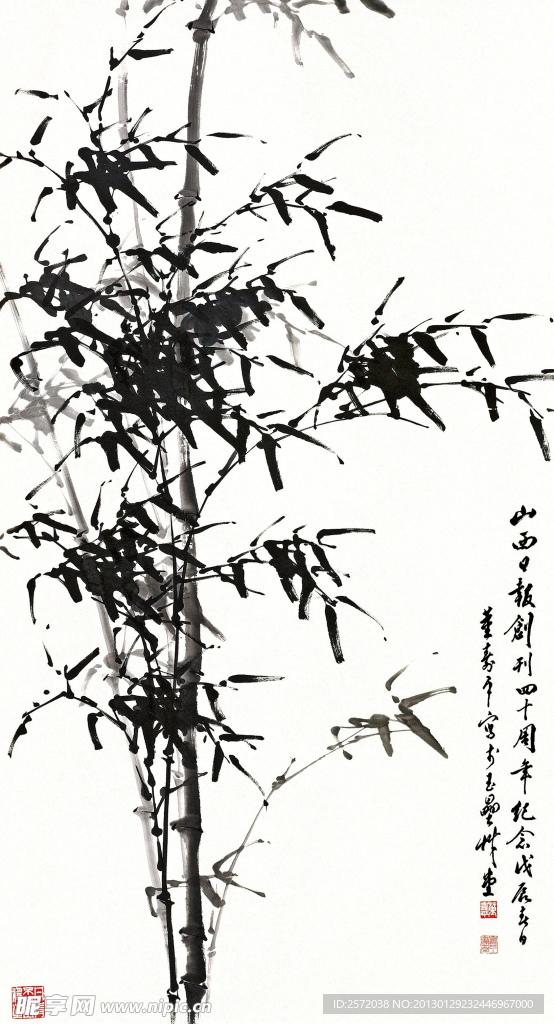 山西日報創刊四十周年紀念戊辰春日
董壽平寫於玉壘
昵享网 www.nipic.cn
ID:2572038 NO:20130129232446967000